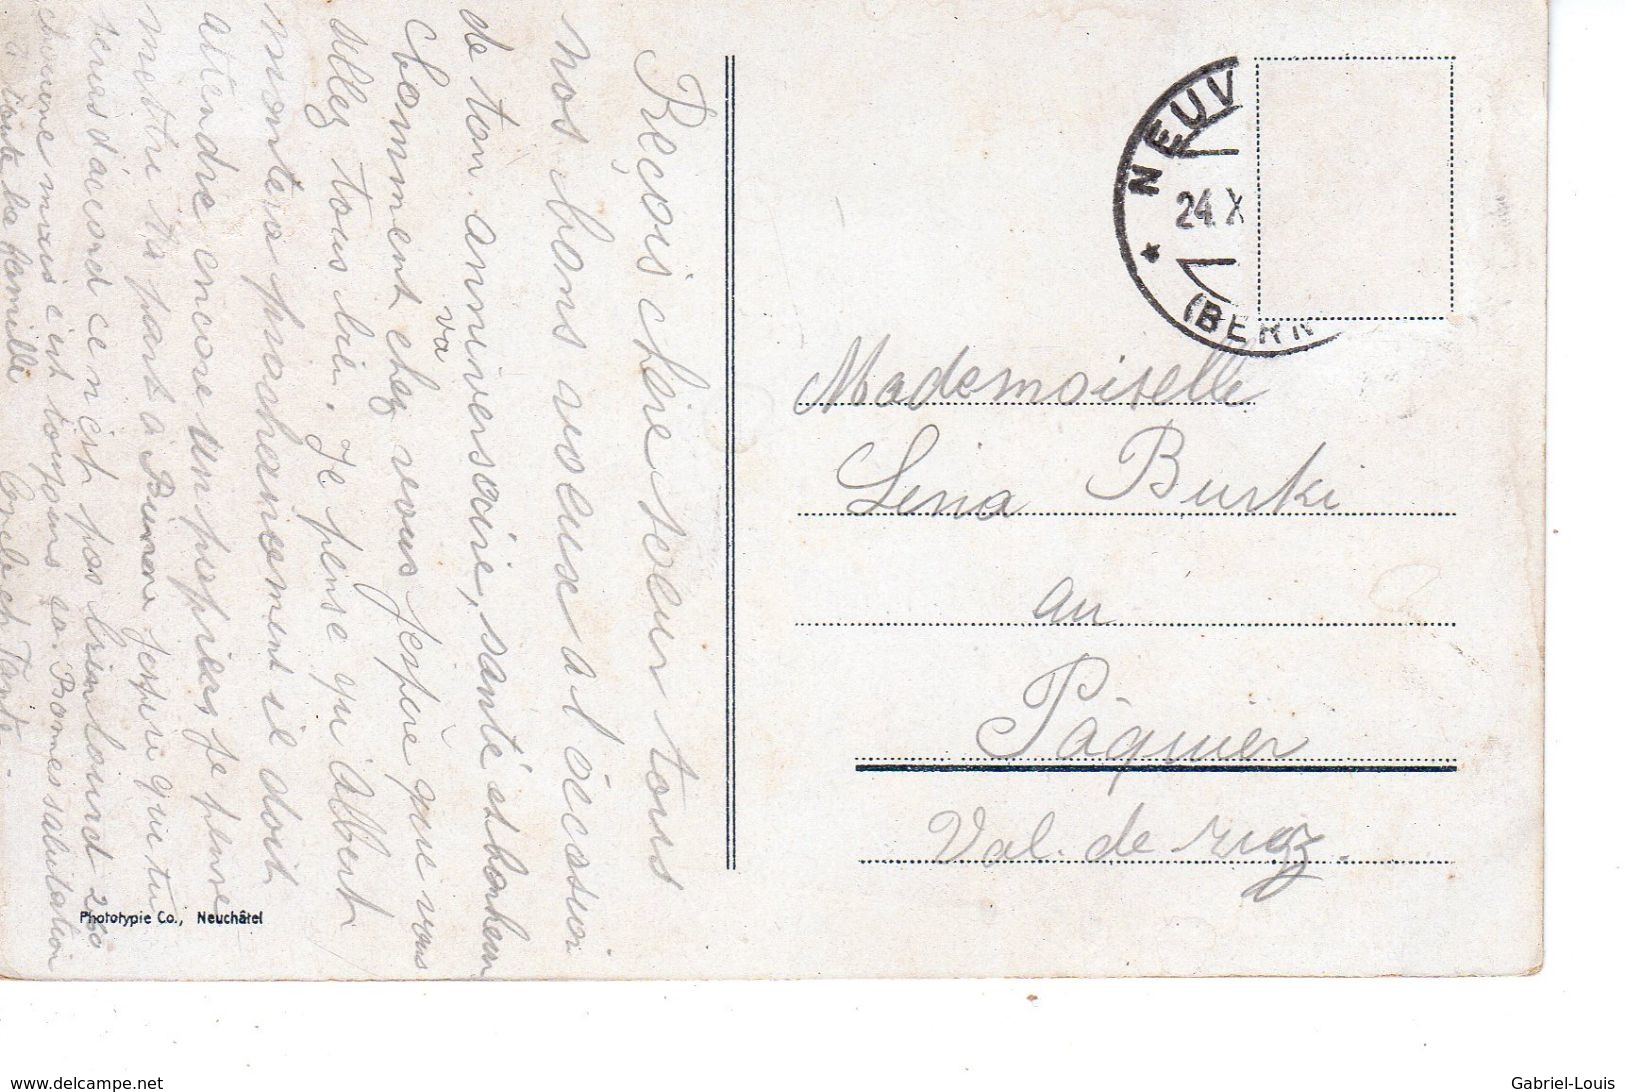 Reçois chère soeur tous
nos bons voeux a l'occasion
de ton anniversaire, santé et bonheur
Comment chez vous j'espère que vous
va
allez tous bien. Je pense qu'Albert
montera prochainement il doit
attendre encore un papier je pense
mettre ta part à j'espère que tu
seras d'accord ce n'est pas bien lourd 2.50
mais c'est toujours ça. Bonnes salutation
à toute la famille Tante.
Phototypie Co., Neuchâtel
NEUV
24. X
(BERN
Mademoiselle
Lina Burki
au
Pâquier
Val. de ruz.
www.delcampe.net
Gabriel-Louis